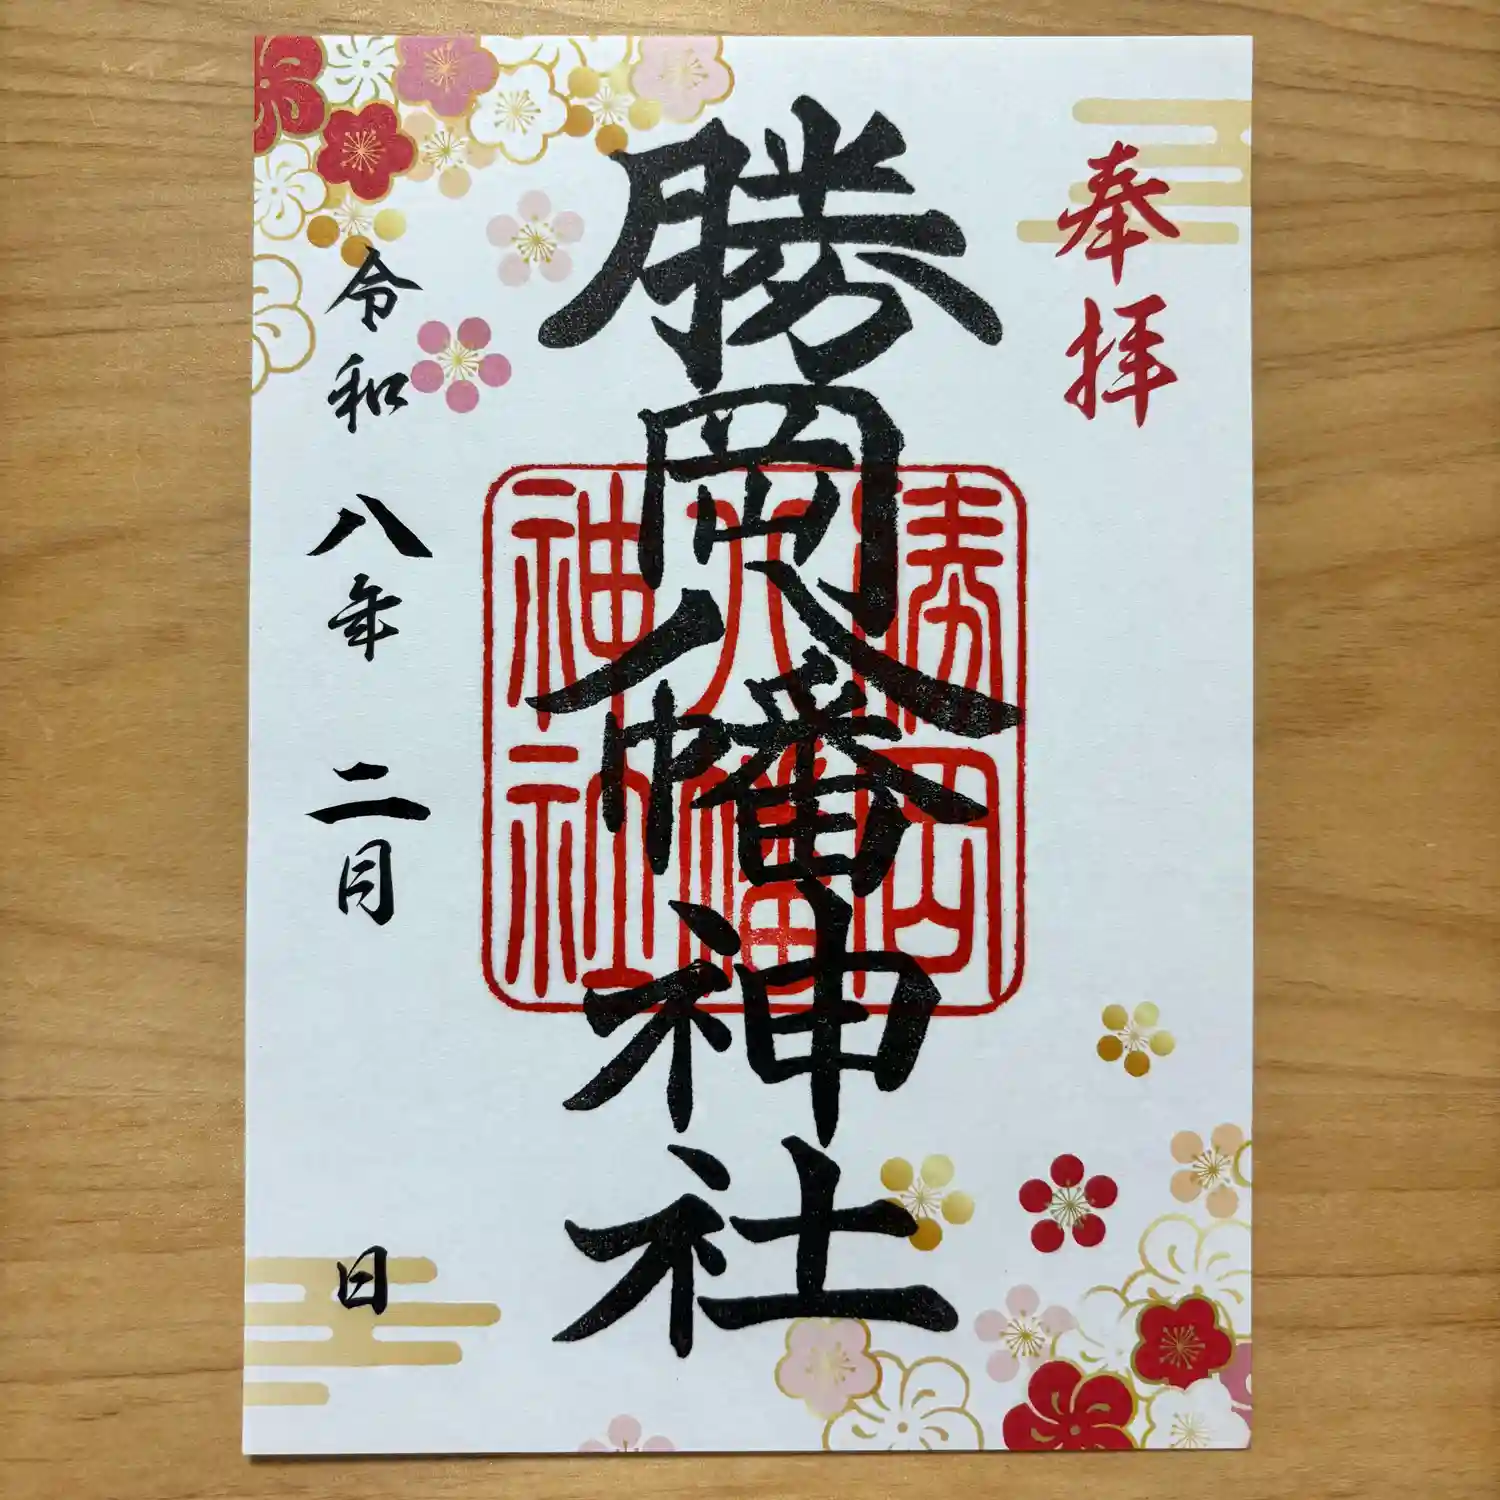 奉拝
勝岡八幡神社
勝岡
八幡
神社
令和八年二月 日